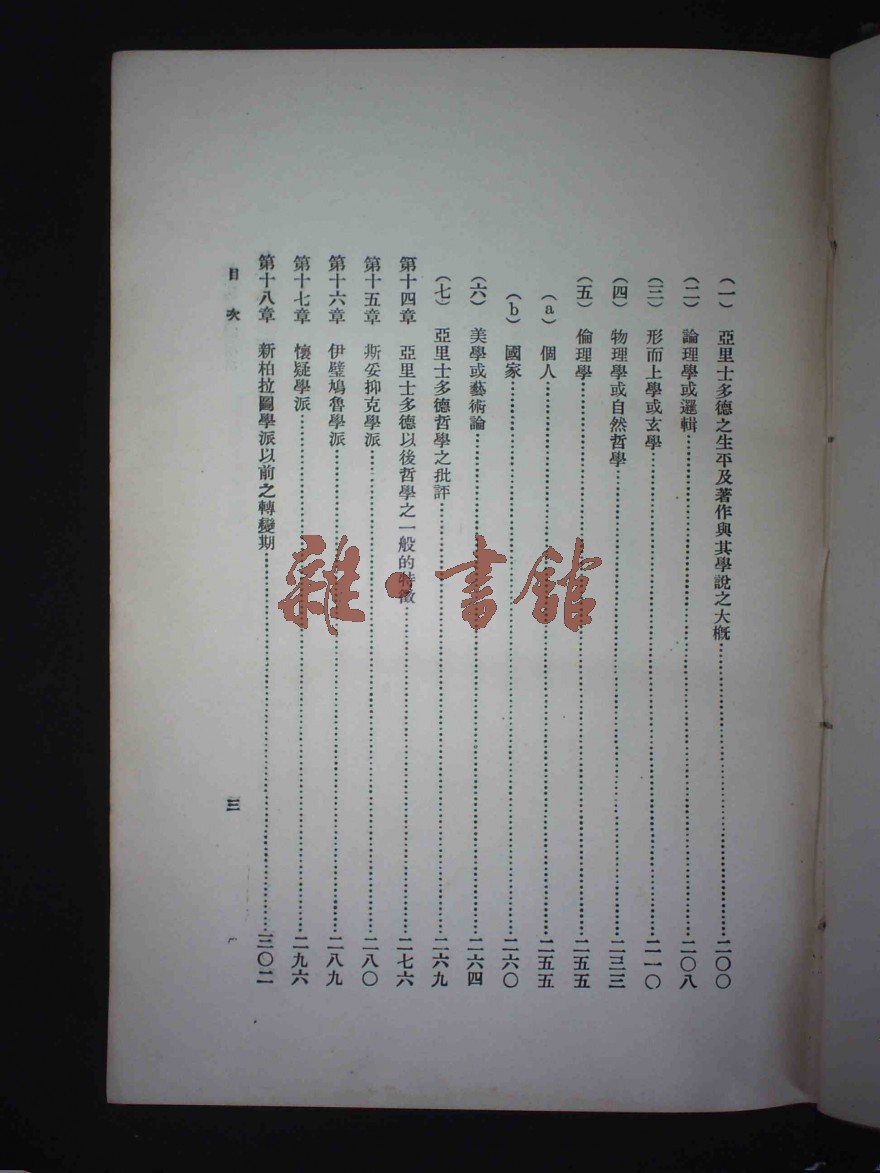 （一）　亞里士多德之生平及著作與其學說之大槪……二〇〇
（二）　論理學或邏輯……二〇八
（三）　形而上學或玄學……二一〇
（四）　物理學或自然哲學……二三三
（五）　倫理學……二五五
（a）　個人……二五五
（b）　國家……二六〇
（六）　美學或藝術論……二六四
（七）　亞里士多德哲學之批評……二六九
第十四章　亞里士多德以後哲學之一般的特徵……二七六
第十五章　斯妥抑克學派……二八〇
第十六章　伊壁鳩魯學派……二八九
第十七章　懷疑學派……二九六
第十八章　新柏拉圖學派以前之轉變期……三〇二
目次　三
雜·書館